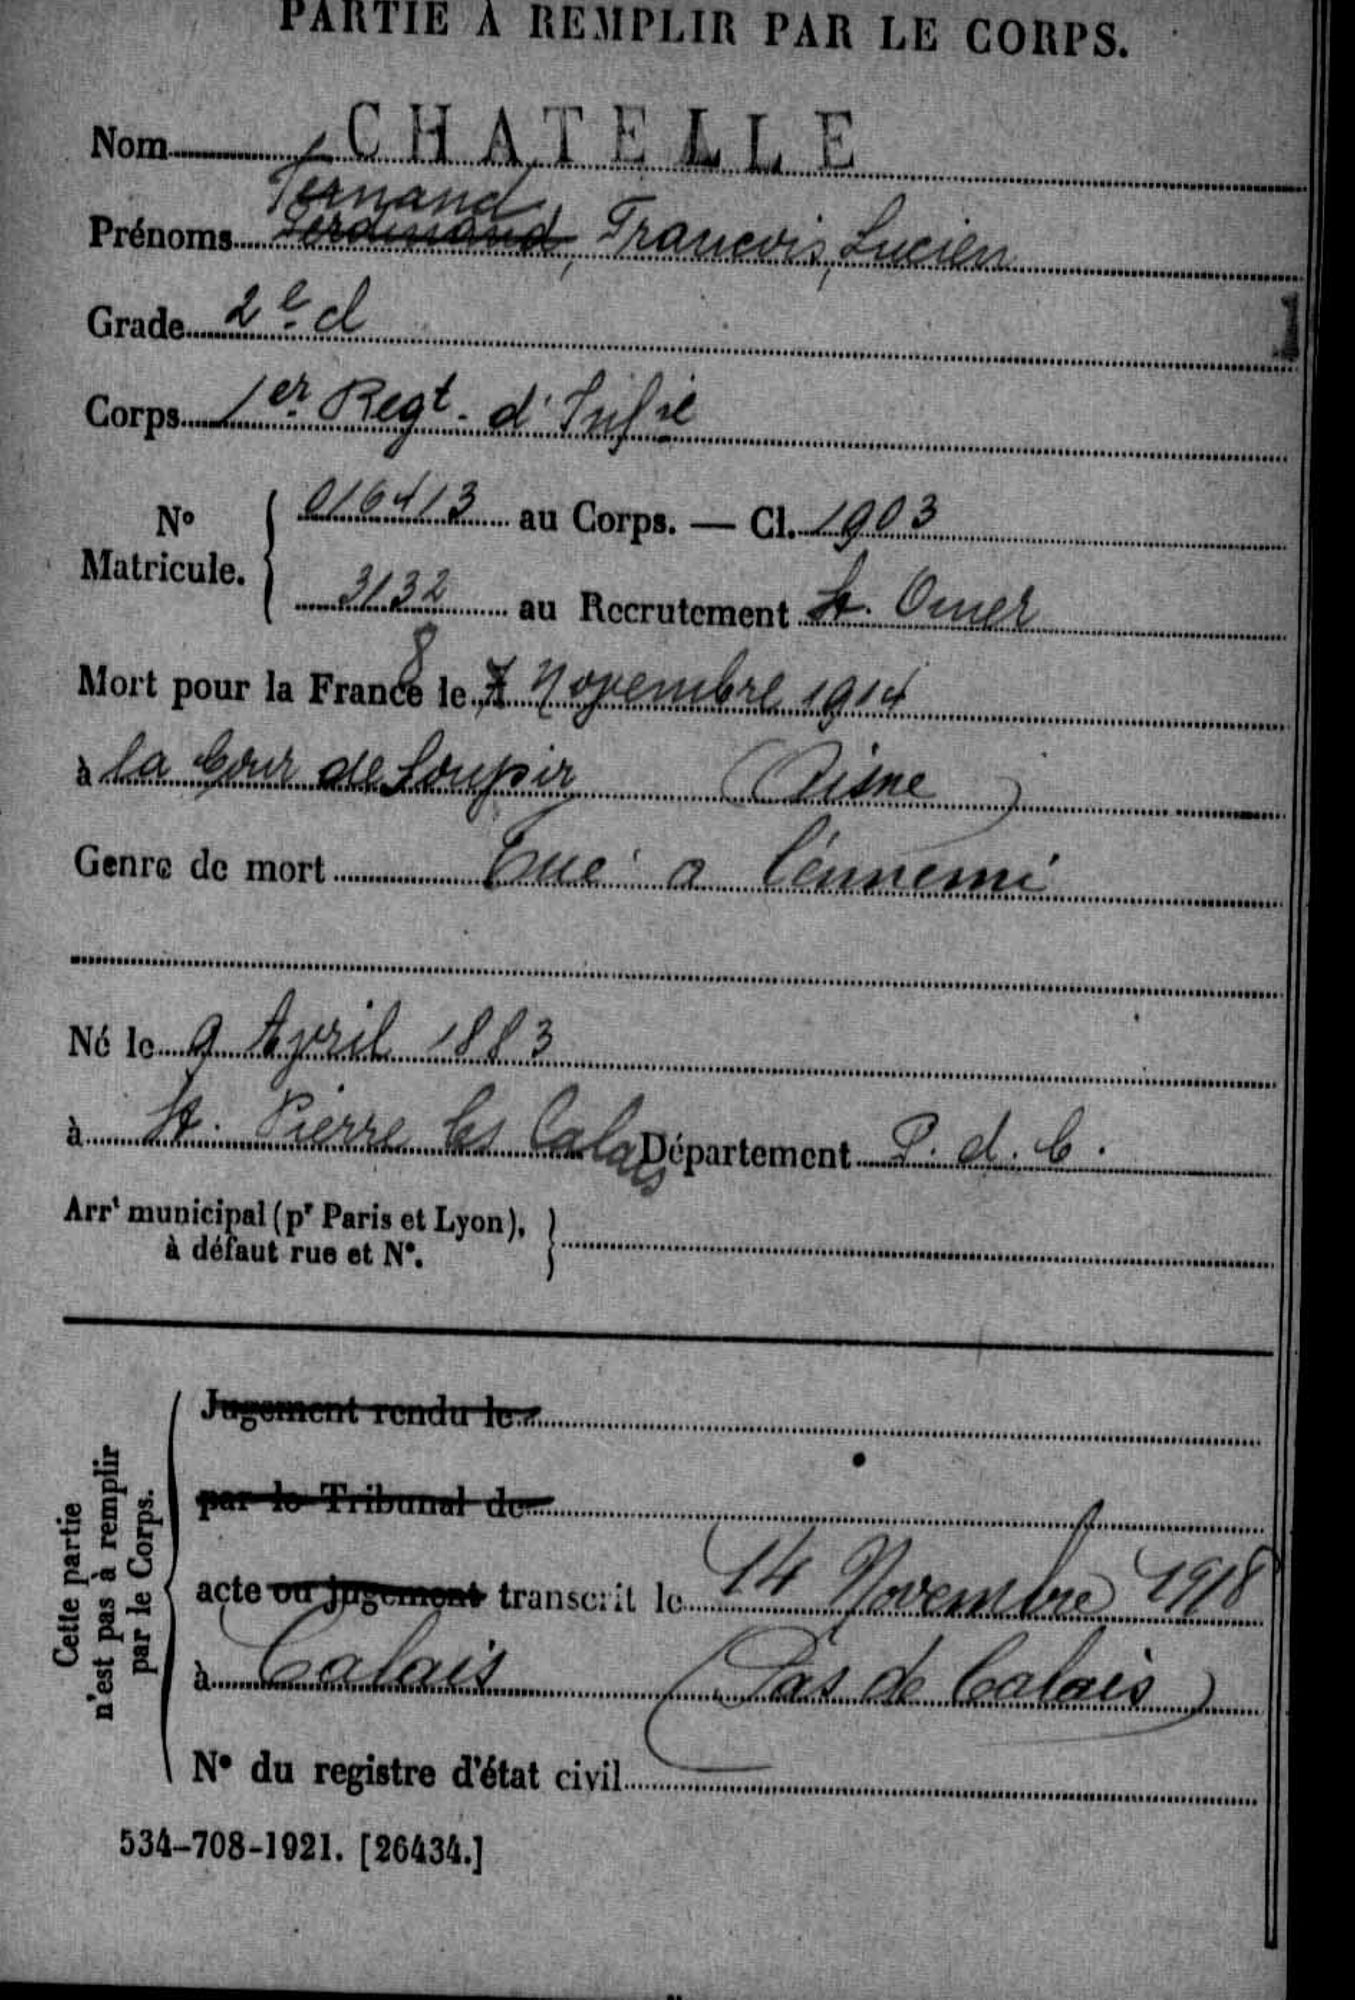 PARTIE A REMPLIR PAR LE CORPS.
Nom CHATELLE
Fernand
Prénoms Ferdinand, Francois, Lucien
Grade 2e cl
Corps 1er Regt. d'Infie
No Matricule. 016413 au Corps. — Cl. 1903
3132 au Recrutement St. Omer
8
Mort pour la France le 7 Novembre 1914
à la Cour de Soupir (Aisne)
Genre de mort Tué a l'énnemi
Né le 9 Avril 1883
à St. Pierre les Calais Département P. d. C.
Arrt municipal (pr Paris et Lyon),
à défaut rue et No.
Cette partie
n'est pas à remplir
par le Corps.
Jugement rendu le
par le Tribunal de
acte ou jugement transcrit le 14 Novembre 1918
à Calais (Pas de Calais)
No du registre d'état civil
534-708-1921. [26434.]